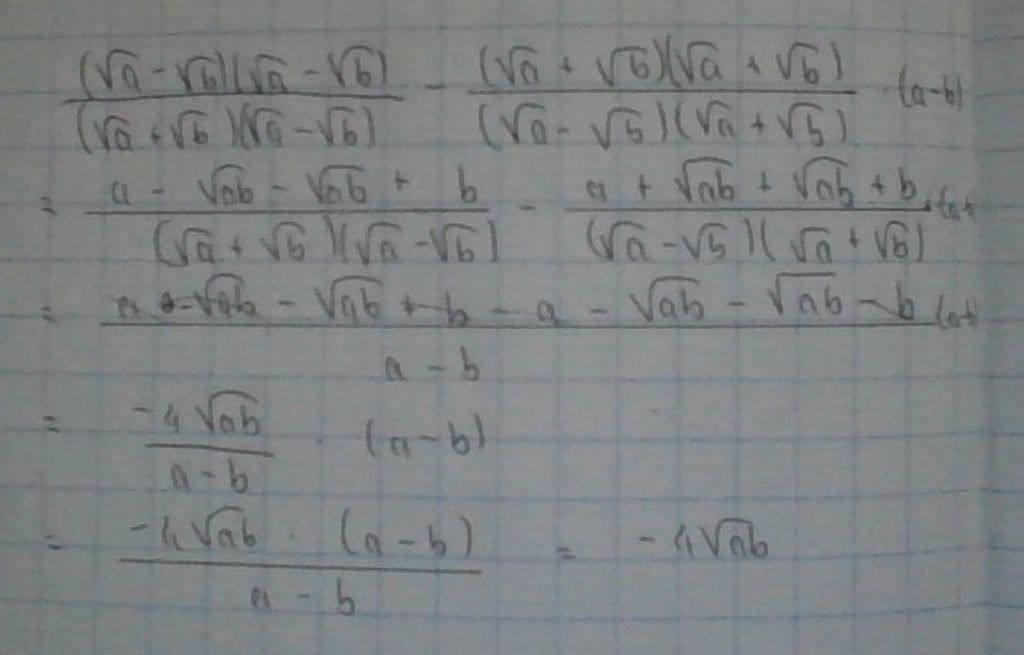 (√a - √b)(√a - √b) - (√a + √b)(√a + √b) · (a-b)
(√a + √b)(√a - √b) (√a - √b)(√a + √b)
= a - √ab - √ab + b - a + √ab + √ab + b · (a-
(√a + √b)(√a - √b) (√a - √b)(√a + √b)
= a - √ab - √ab + b - a - √ab - √ab - b (a-
a - b
= -4√ab · (a - b)
a - b
= -4√ab · (a - b) = -4√ab
a - b